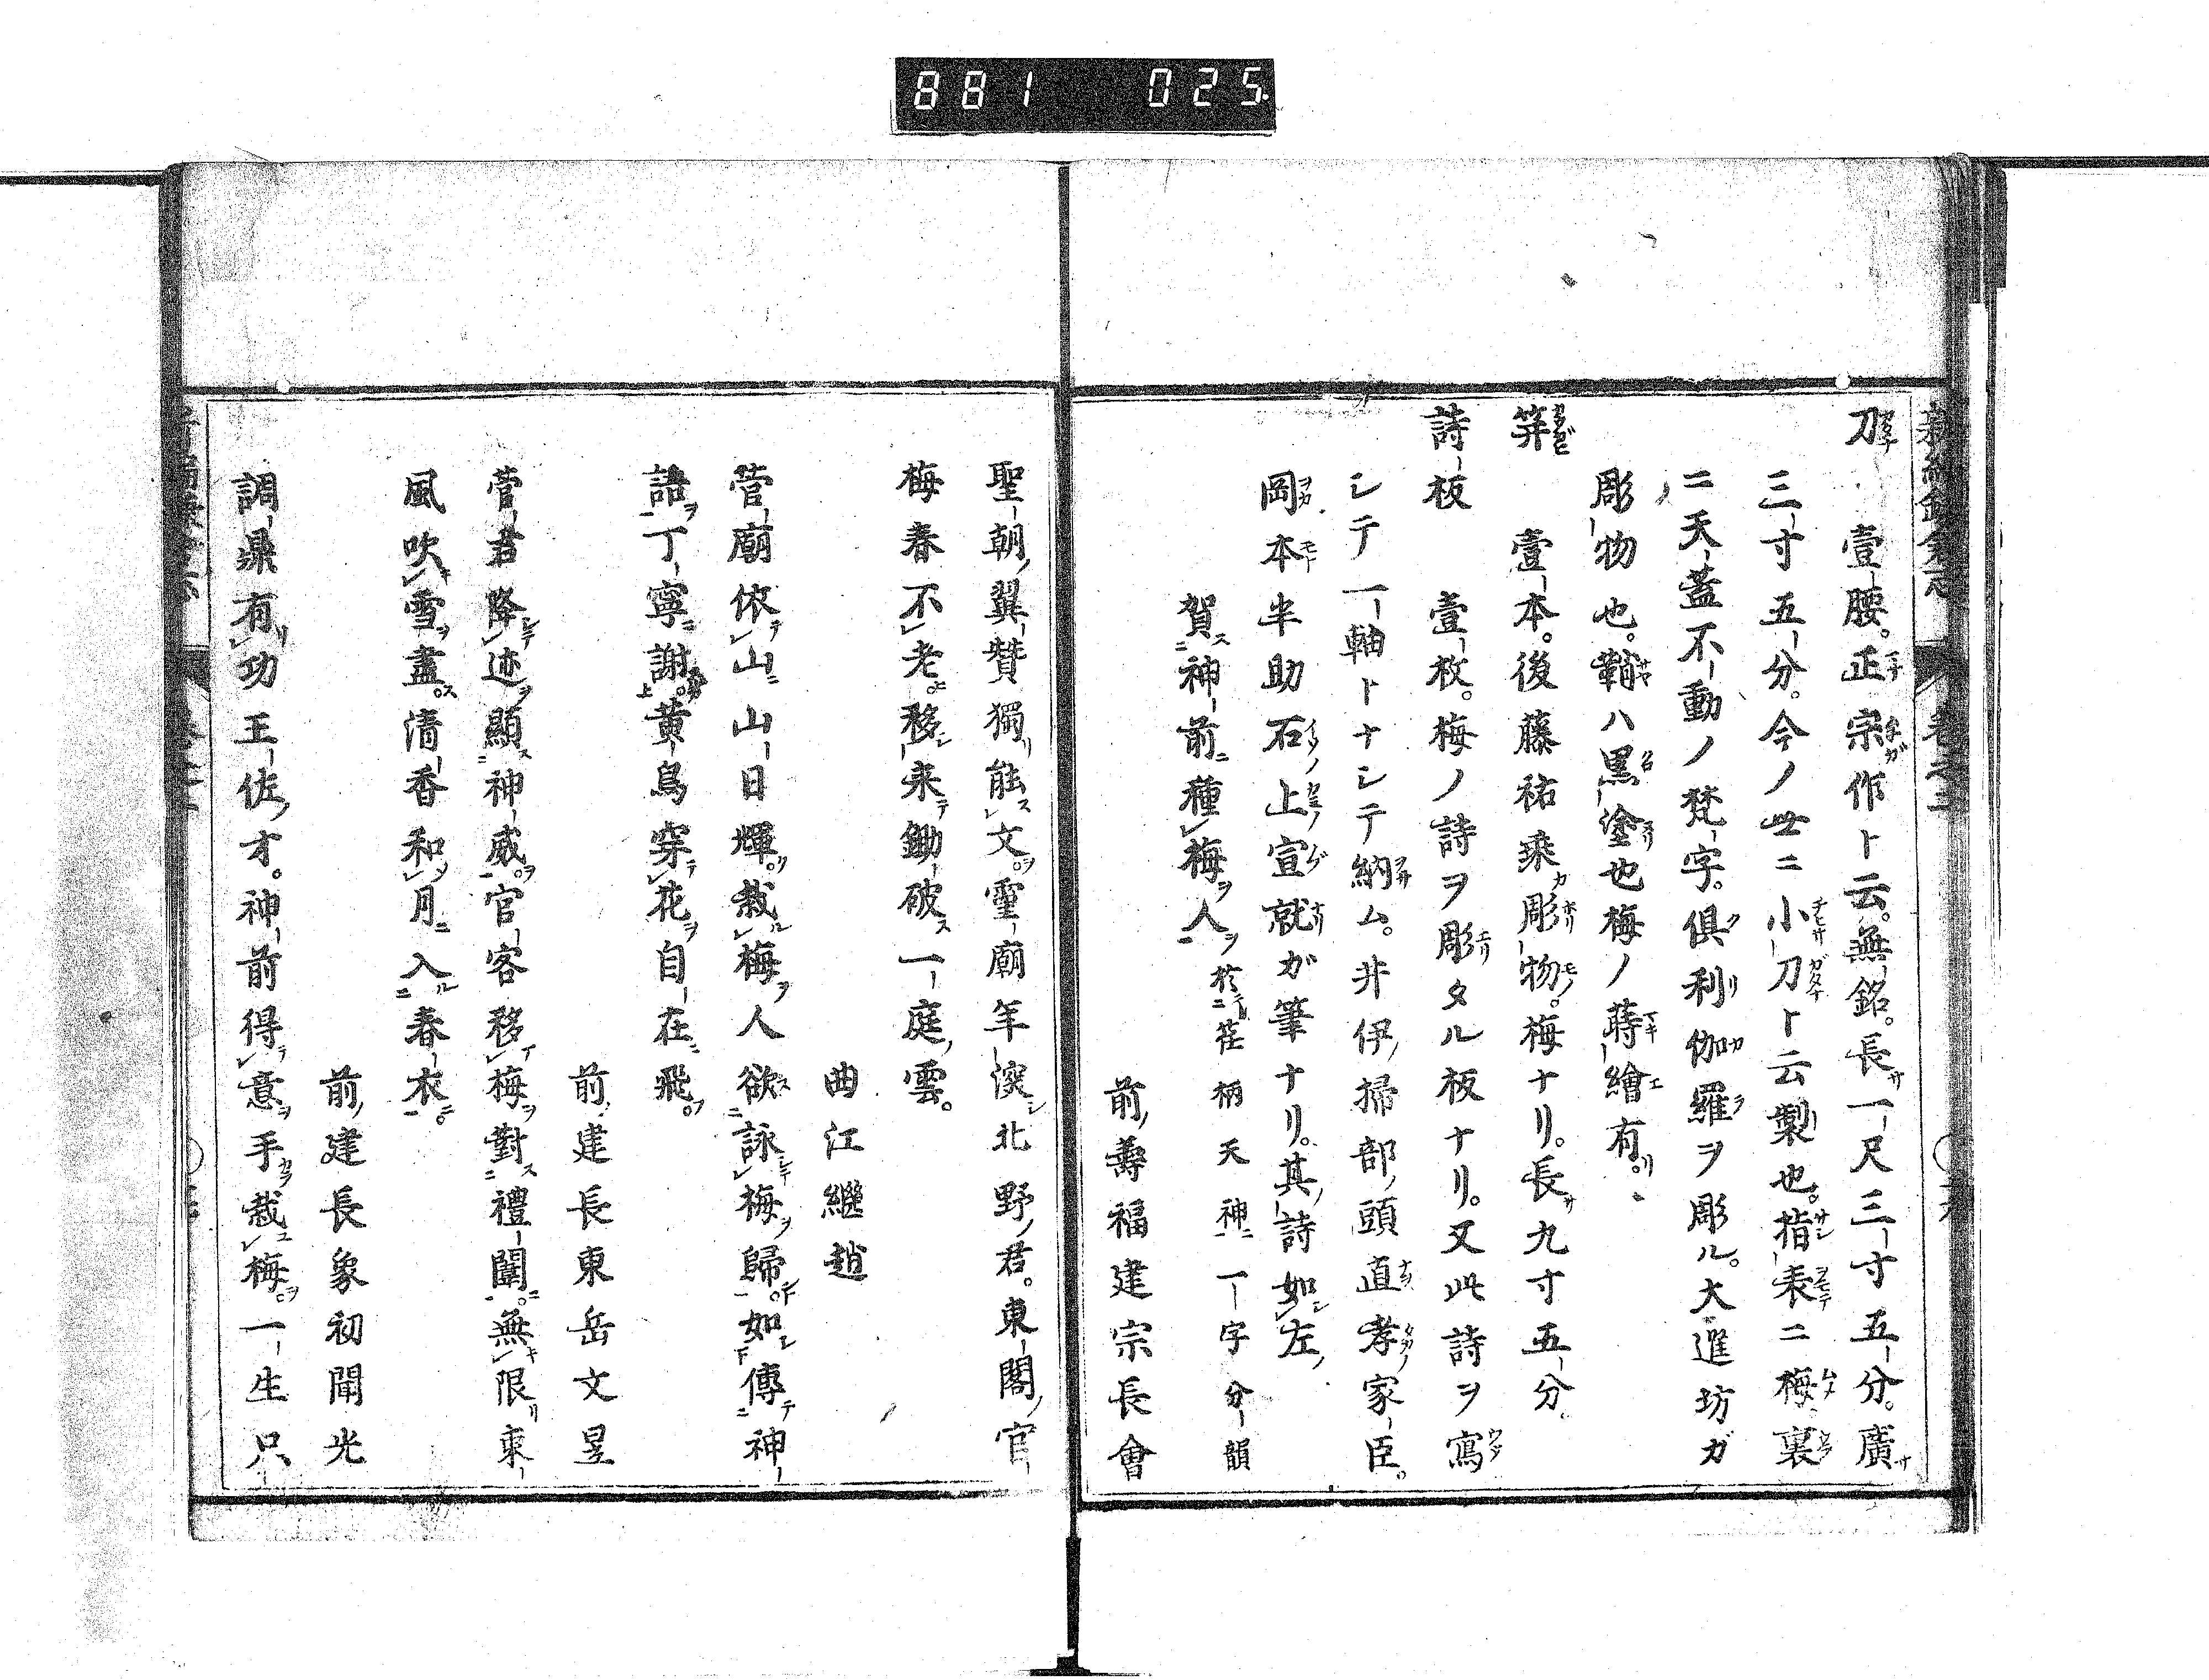 881 025
刀 壹腰。正宗作ト云。無銘。長一尺三寸五分。廣
三寸五分。今ノ世ニ小刀ト云製也。指表ニ梅裏
ニ天蓋不動ノ梵字。倶利伽羅ヲ彫ル。大進坊ガ
彫物也。鞘ハ黒塗也梅ノ蒔繪有。
笄 壹本。後藤祐乘彫物。梅ナリ。長九寸五分。
詩板 壹枚。梅ノ詩ヲ彫タル板ナリ。又此詩ヲ寫
シテ一軸トナシテ納ム。井伊掃部頭直孝家臣。
岡本半助石上宣就ガ筆ナリ。其詩如左。
賀神前種梅人 於荏柄天神一字分韻
前壽福建宗長會
聖朝翼贊獨能文。靈廟年深北野君。東閣官
梅春不老。移来鋤破一庭雲。
曲江繼趙
菅廟依山山日輝。栽梅人欲詠梅歸。如傳神
語丁寧謝。黄鳥穿花自在飛。
前建長東岳文昱
菅君降迹顯神威。官客移梅對禮闈。無限東
風吹雪盡。清香和月入春衣。
前建長象初聞光
調鼎有功王佐才。神前得意手栽梅。一生只